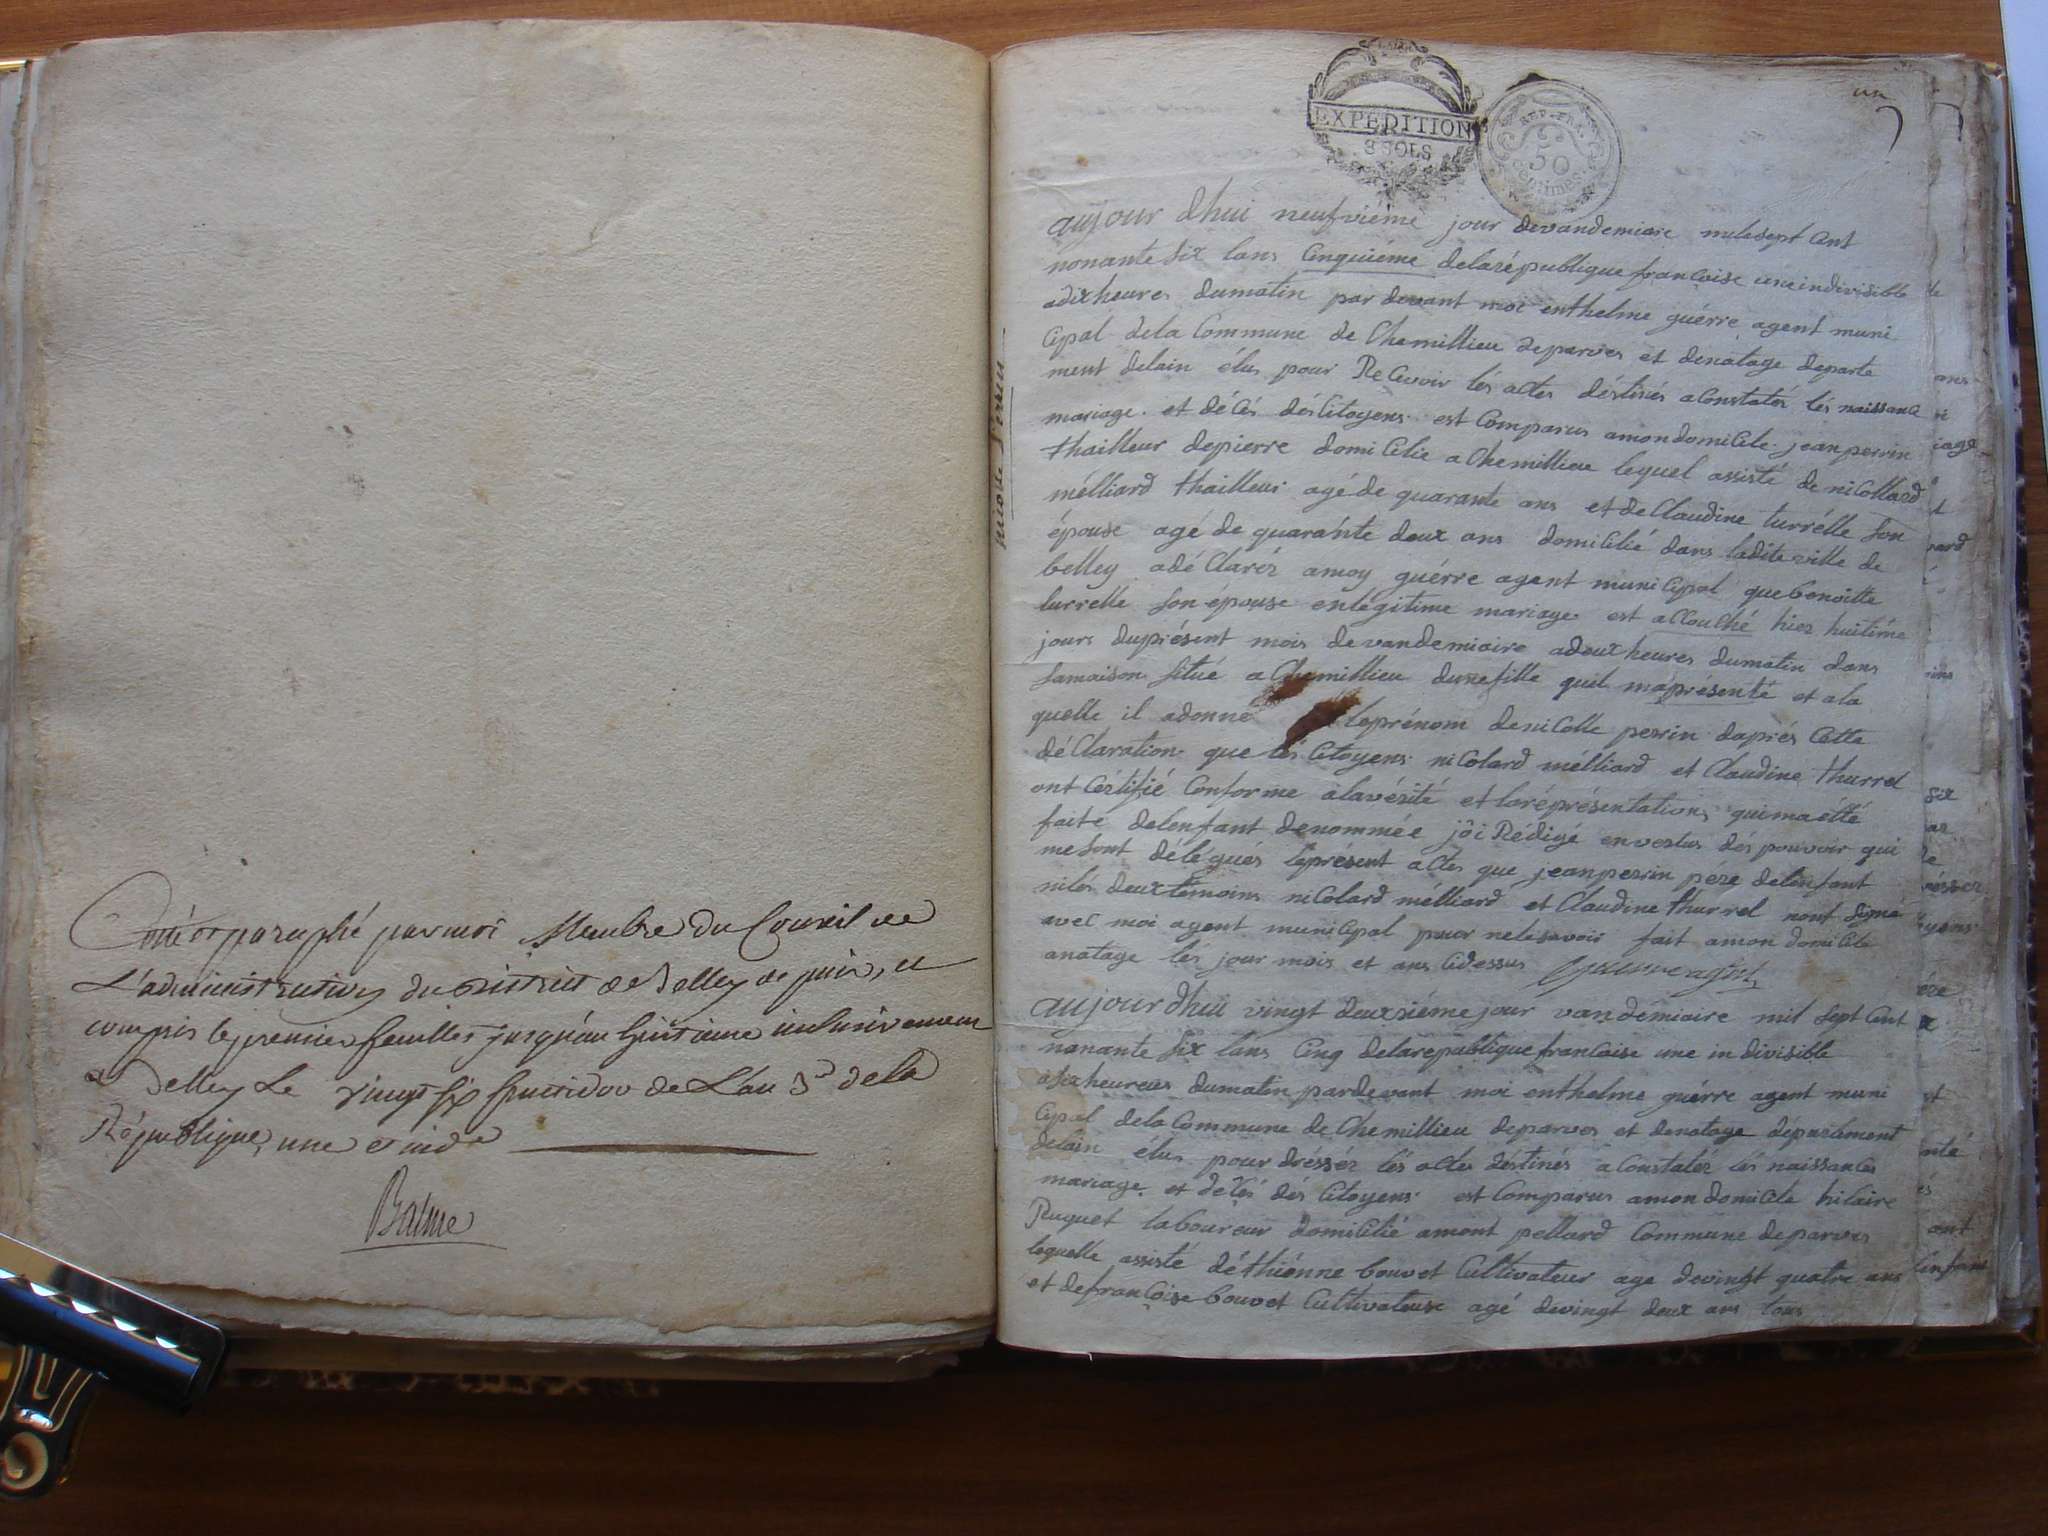 Coté et paraphé par moi Membre du Conseil de
L'administration du District de Belley de puis, et
compris le premier feuillet jusqu'au huitieme inclusivement
a Belley Le vingt six fructidor de L'an 3e de la
République, une et inde
Balme
EXPEDITION
8 SOLS
REP. FRA.
50
centimes
un
nicolle Perrin
aujour dhui neufvième jour devandemiaire mille sept Cent
nonante six lans Cinquiéme delarépublique francoise une indivisible
adix heures dumatin par devant moi enthelme guérre agent muni
Cipal dela Commune de Chemillieu deparves et denatage departe
ment delain élus pour Recevoir lés actes déstinés aConstatér lés naissance
mariage et décés dés Citoyens est Comparus amondomicile jean perrin
thailleur depierre domicilie a Chemillieu lequel assisté de nicollard
mélliard thailleur agé de quarante ans et de Claudine turrélle son
épouse agé de quarante deux ans domicilié dans ladite ville de
belley adé Clarér amoy guérre agent municipal que benoitte
turrelle son épouse enlegitime mariage est accouché hier huitiéme
jours duprésent mois devandemiaire adeux heures dumatin dans
samaison situé a Chemillieu dunefille quil maprésenté et ala
quelle il adonné leprénom denicolle perrin daprés Cette
déClaration que lés Citoyens nicolard mélliard et Claudine thurrel
ont Cértifié Conforme alavérité et laréprésentation quima étté
faite delenfant denommée jôi Rédigé envertus dés pouvoir qui
me sont délégués leprésent actes que jean perrin pére delenfant
nilés deux témoins nicolard mélliard et Claudine thurrel nont signé
avec moi agent municipal pour nelesavoir fait amon domicile
anatage lés jour mois et ans Cidessus Guerre agent
aujour dhui vingt deuxiéme jour vandemiaire mil sept Cent
nonante six lans Cinq delarepublique francoise une indivisible
asix heures dumatin pardevant moi enthelme guérre agent muni
Cipal dela Commune de Chemillieu deparves et denatage départment
delain élus pour dréssér lés actes déstinés aConstatér lés naissances
mariage et décés dés Citoyens est Comparus amondomicile hilaire
Ruguet laboureur domicilié amont pellard Commune deparves
lequelle assisté déthiénne bouvet Cultivateur age devingt quatre ans
et defrancoise bouvet Cultivateuse agé devingt deux ans tous